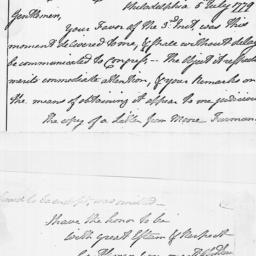 Philadelphia 8 July 1779
Gentlemen,
Your Favor of the 3d Inst. was this
moment delivered to me, & shall without delay
be communicated to Congress -- The Object it respects
merits immediate attention, & your Remarks on
the means of obtaining it appear to me judicious
The copy of a Letter from Moore Furman
I have the honor to be
with great Esteem & Respect